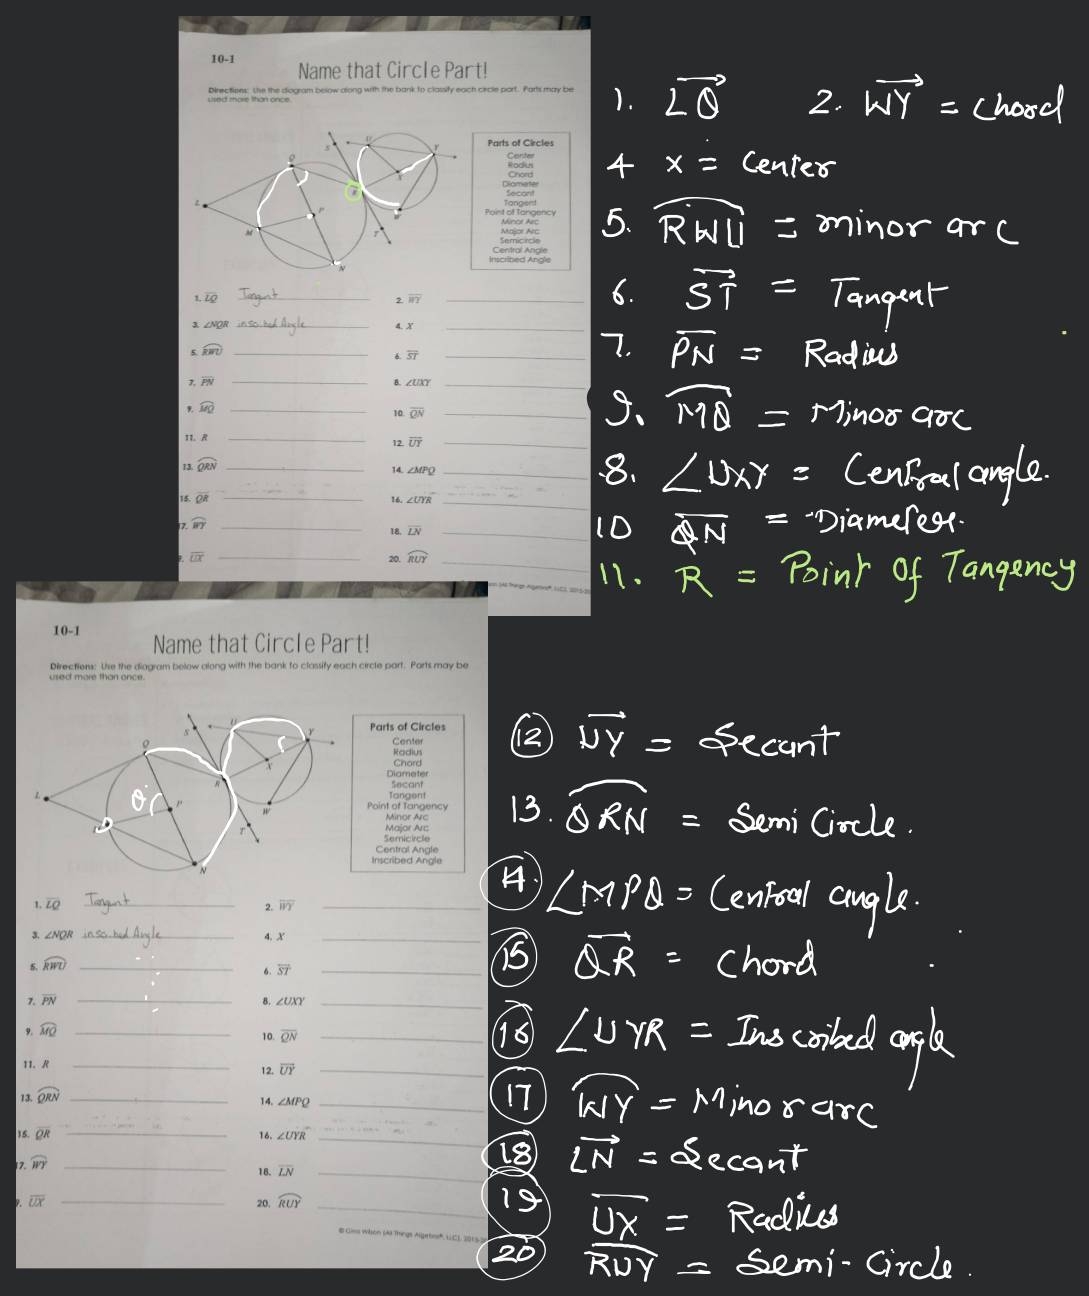 10-1
Name that Circle Part!
Directions: Use the diagram below along with the bank to classify each circle part. Parts may be
used more than once.
Parts of Circles
Center
Radius
Chord
Diameter
Secant
Tangent
Point of Tangency
Minor Arc
Major Arc
Semicircle
Central Angle
Inscribed Angle
L Q M P N R S T U X Y W
1. LQ Tangent
2. WY
3. ∠NQR inscribed Angle
4. X
5. RWU
6. ST
7. PN
8. ∠UXY
9. MQ
10. QN
11. R
12. UY
13. QRN
14. ∠MPQ
15. QR
16. ∠UYR
17. WY
18. LN
UX
20. RUY
1. LQ 2. WY = Chord
4 x = Center
5. RWU = minor arc
6. ST = Tangent
7. PN = Radius
9. MQ = Minor arc
8. ∠UXY = Central angle.
10 QN = Diameter.
11. R = Point Of Tangency
10-1
Name that Circle Part!
Directions: Use the diagram below along with the bank to classify each circle part. Parts may be
used more than once.
Parts of Circles
Center
Radius
Chord
Diameter
Secant
Tangent
Point of Tangency
Minor Arc
Major Arc
Semicircle
Central Angle
Inscribed Angle
L Q P N R S T U X Y W
1. LQ Tangent
2. WY
3. ∠NQR inscribed Angle
4. X
5. RWU
6. ST
7. PN
8. ∠UXY
9. MQ
10. QN
11. R
12. UY
13. QRN
14. ∠MPQ
15. QR
16. ∠UYR
17. WY
18. LN
UX
20. RUY
© Gina Wilson (All Things Algebra®, LLC), 2015-20
12 UY = Secant
13. QRN = Semi Circle.
14. ∠MPQ = Central angle.
15 QR = Chord
16 ∠UYR = Inscribed angle
17 WY = Minor arc
18 LN = Secant
19 UX = Radius
20 RUY = Semi-Circle.